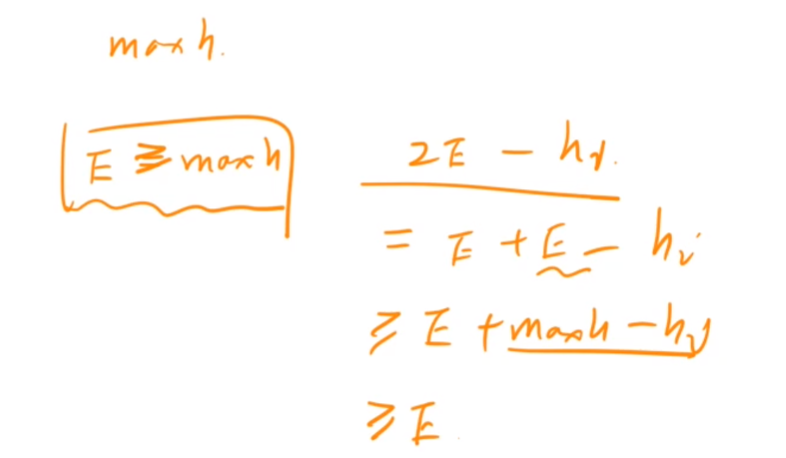 max h.
E ≥ max h
2E - hi.
= E + E - hi
≥ E + max h - hi
≥ E.